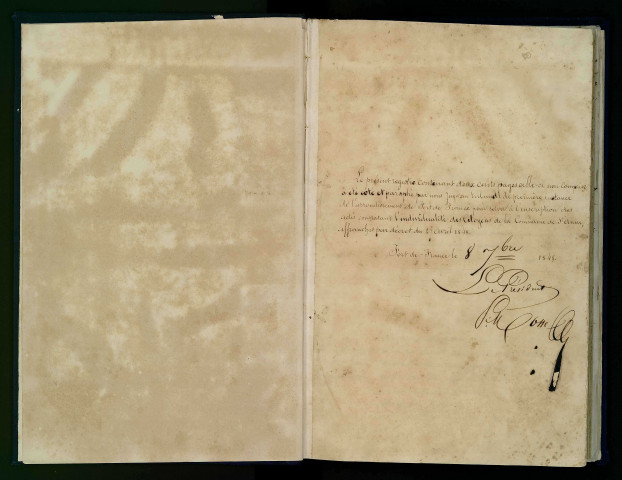 Le présent registre contenant deux cents pages celle-ci non comprise
a été coté et paraphé par nous Juge au tribunal de première instance
de l'arrondissement de Fort de France pour servir à l'inscription des
actes constatant l'individualité des Citoyens de la Commune de
affranchis par décret du 27 avril 1848.
Fort de France le 8 7bre 1848
Le Président